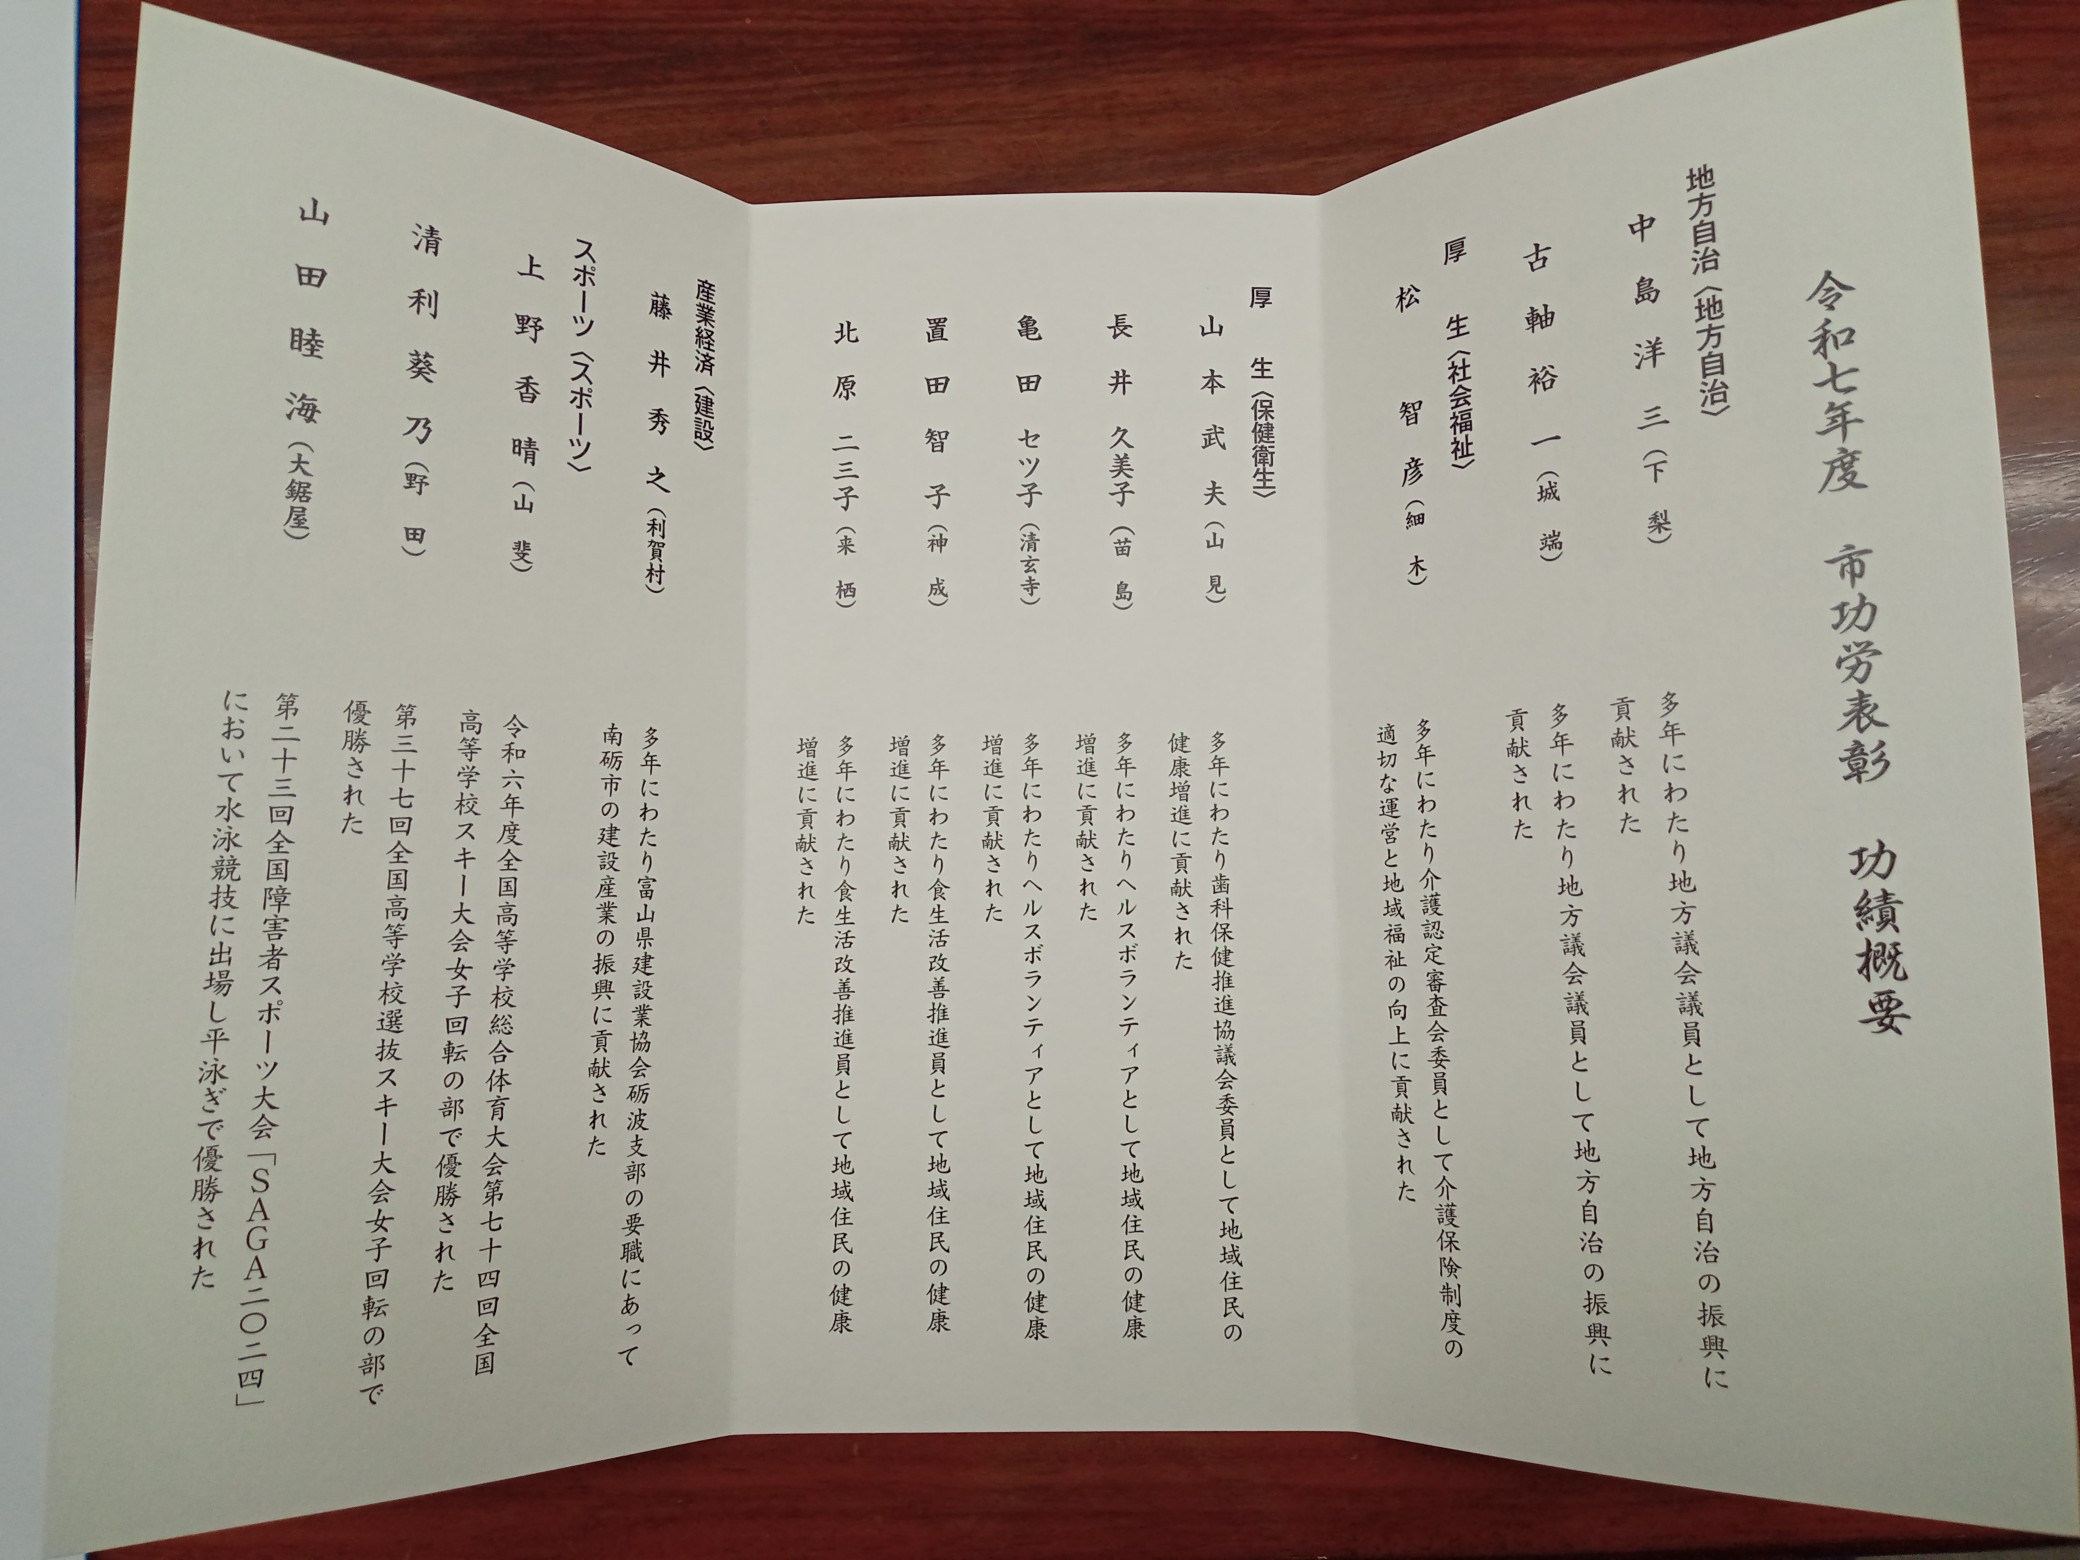 令和七年度　市功労表彰　功績概要
地方自治〈地方自治〉
中島洋三（下梨）
多年にわたり地方議会議員として地方自治の振興に
貢献された
古軸裕一（城端）
多年にわたり地方議会議員として地方自治の振興に
貢献された
厚生〈社会福祉〉
松智彦（細木）
多年にわたり介護認定審査会委員として介護保険制度の
適切な運営と地域福祉の向上に貢献された
厚生〈保健衛生〉
山本武夫（山見）
多年にわたり歯科保健推進協議会委員として地域住民の
健康増進に貢献された
長井久美子（苗島）
多年にわたりヘルスボランティアとして地域住民の健康
増進に貢献された
亀田セツ子（清玄寺）
多年にわたりヘルスボランティアとして地域住民の健康
増進に貢献された
置田智子（神成）
多年にわたり食生活改善推進員として地域住民の健康
増進に貢献された
北原二三子（来栖）
多年にわたり食生活改善推進員として地域住民の健康
増進に貢献された
産業経済〈建設〉
藤井秀之（利賀村）
多年にわたり富山県建設業協会砺波支部の要職にあって
南砺市の建設産業の振興に貢献された
スポーツ〈スポーツ〉
上野香晴（山斐）
令和六年度全国高等学校総合体育大会第七十四回全国
高等学校スキー大会女子回転の部で優勝された
清利葵乃（野田）
第三十七回全国高等学校選抜スキー大会女子回転の部で
優勝された
山田睦海（大鋸屋）
第二十三回全国障害者スポーツ大会「ＳＡＧＡ二〇二四」
において水泳競技に出場し平泳ぎで優勝された